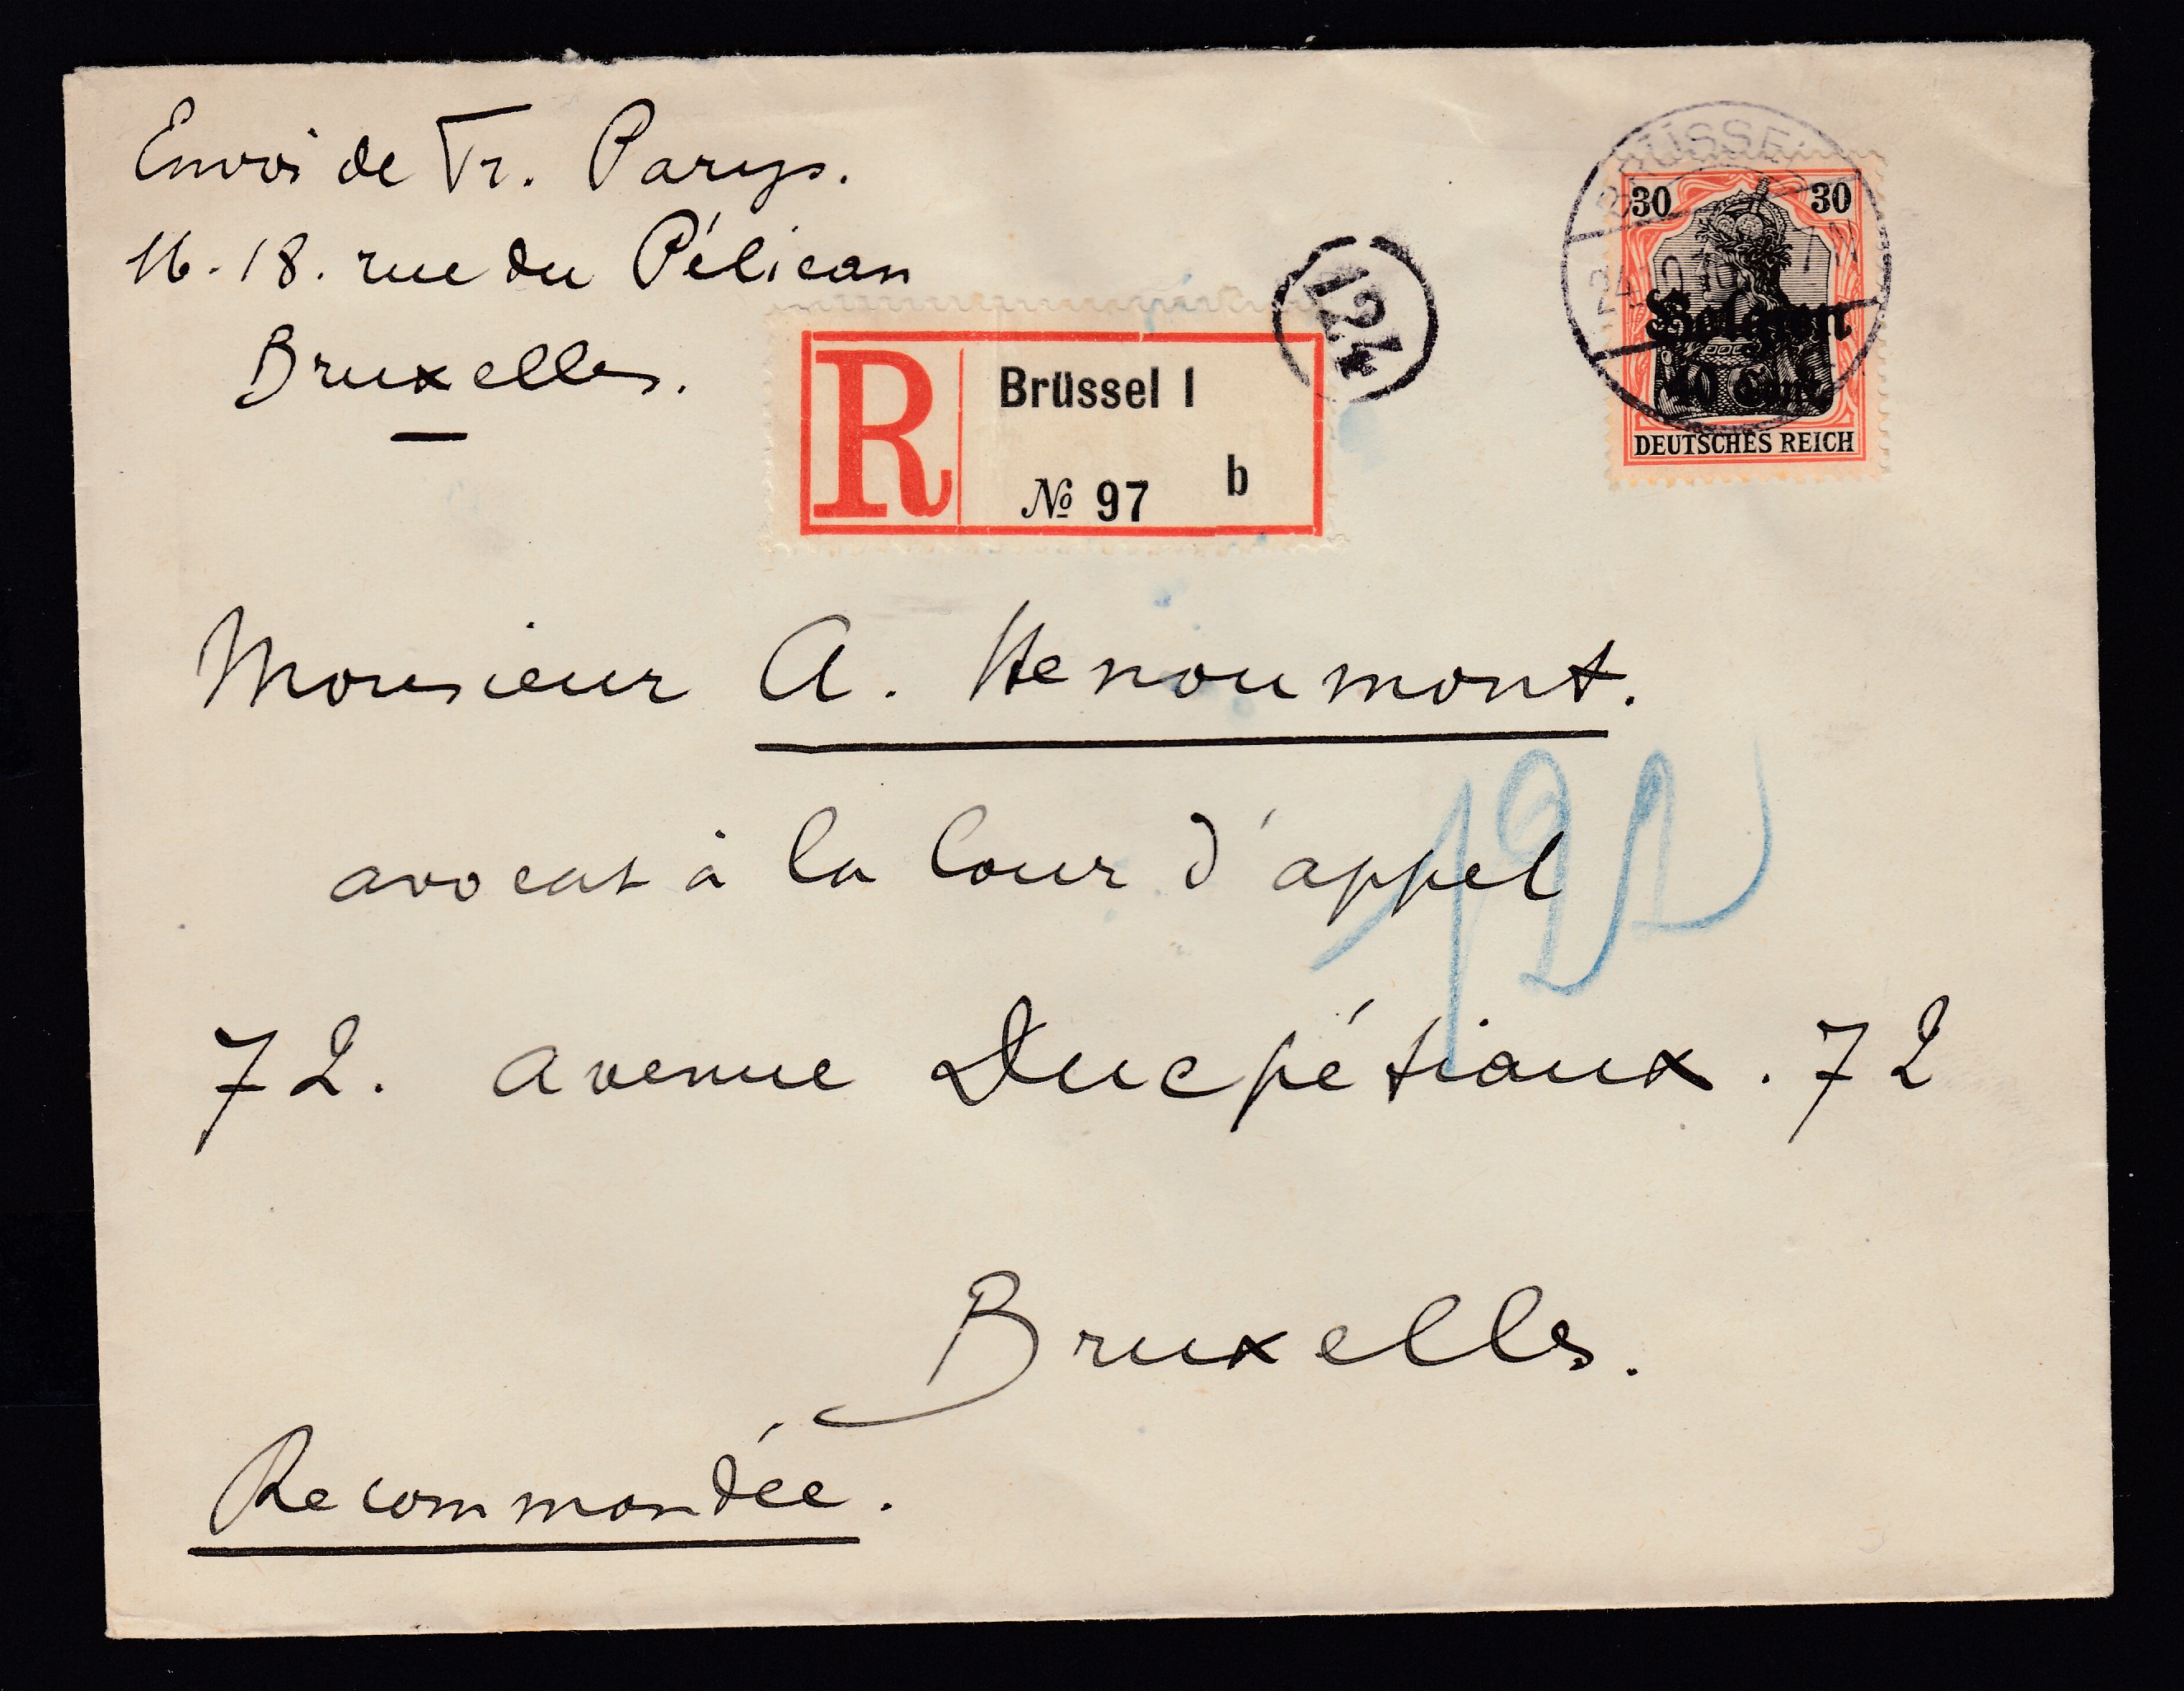 Envoi de Fr. Parys.
16-18. rue du Pélican
Bruxelles.
124
BRÜSSEL
30 30
Belgien
40 Cent.
DEUTSCHES REICH
R
Brüssel 1
№ 97 b
Monsieur A. Henoumont.
avocat à la Cour d'appel
72. avenue Ducpétiaux. 72
Bruxelles.
Recommandée.